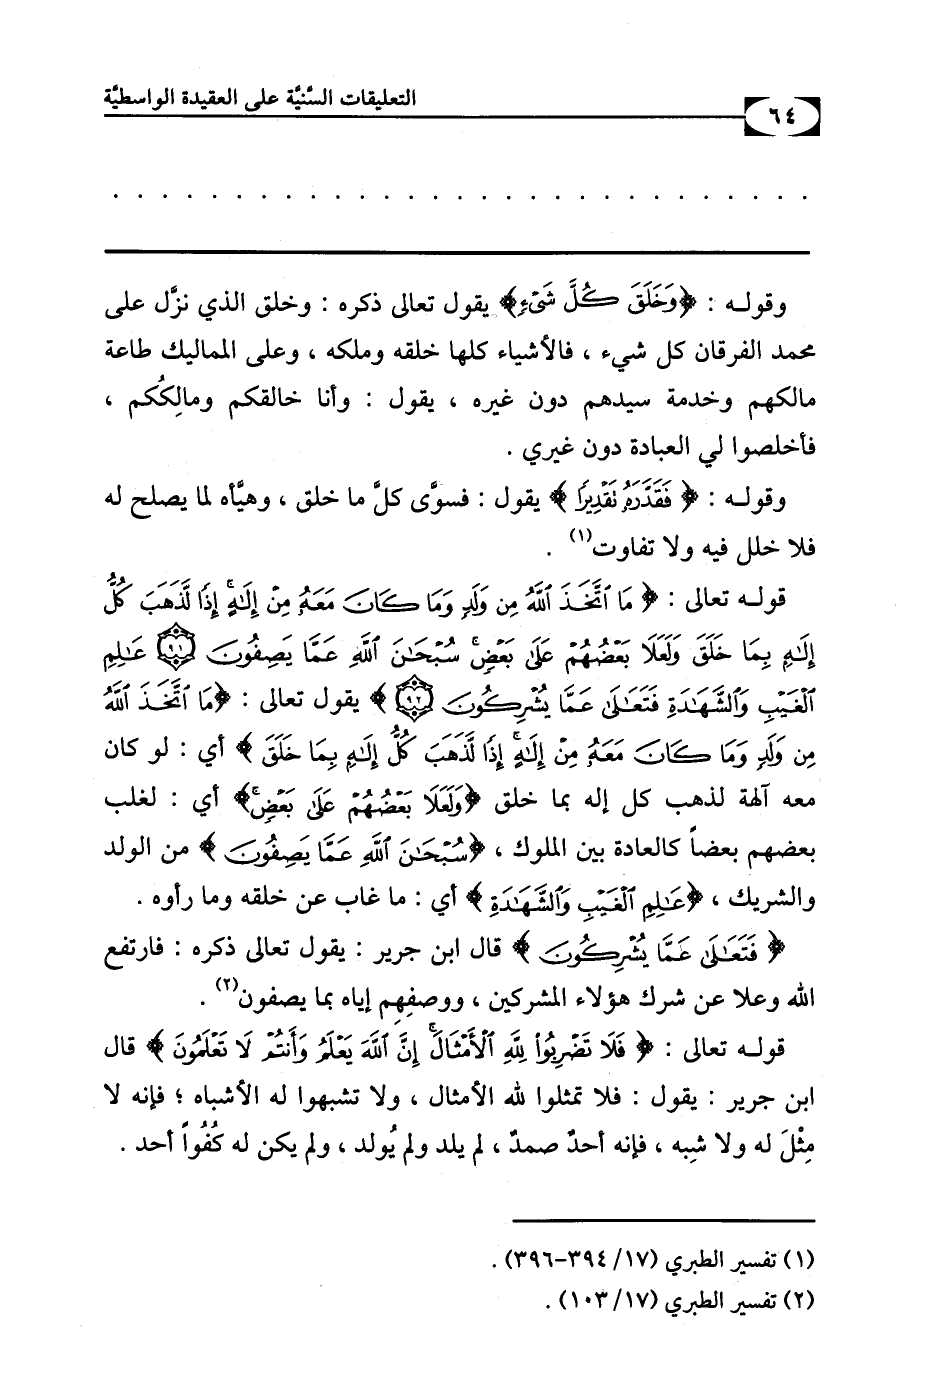 التعليقات السُّنيَّة على العقيدة الواسطيَّة
٦٤
وقولـه : ﴿وَخَلَقَ كُلَّ شَىْءٍ﴾ يقول تعالى ذكره : وخلق الذي نزَّل على
محمد الفرقان كل شيء ، فالأشياء كلها خلقه وملكه ، وعلى المماليك طاعة
مالكهم وخدمة سيدهم دون غيره ، يقول : وأنا خالقكم ومالِكُكم ،
فأخلصوا لي العبادة دون غيري .
وقولـه : ﴿ فَقَدَّرَهُۥ نَقْدِيرًا ﴾ يقول : فسوَّى كلَّ ما خلق ، وهيَّأه لما يصلح له
فلا خلل فيه ولا تفاوت(١) .
قولـه تعالى : ﴿ مَا ٱتَّخَذَ ٱللَّهُ مِن وَلَدٍ وَمَا كَانَ مَعَهُۥ مِنْ إِلَٰهٍ ۚ إِذًا لَّذَهَبَ كُلُّ
إِلَٰهٍ بِمَا خَلَقَ وَلَعَلَا بَعْضُهُمْ عَلَىٰ بَعْضٍ ۚ سُبْحَٰنَ ٱللَّهِ عَمَّا يَصِفُونَ ۝٩١ عَٰلِمِ
ٱلْغَيْبِ وَٱلشَّهَٰدَةِ فَتَعَٰلَىٰ عَمَّا يُشْرِكُونَ ۝٩٢ ﴾ يقول تعالى : ﴿مَا ٱتَّخَذَ ٱللَّهُ
مِن وَلَدٍ وَمَا كَانَ مَعَهُۥ مِنْ إِلَٰهٍ ۚ إِذًا لَّذَهَبَ كُلُّ إِلَٰهٍ بِمَا خَلَقَ ﴾ أي : لو كان
معه آلهة لذهب كل إله بما خلق ﴿وَلَعَلَا بَعْضُهُمْ عَلَىٰ بَعْضٍ ۚ﴾ أي : لغلب
بعضهم بعضاً كالعادة بين الملوك ، ﴿سُبْحَٰنَ ٱللَّهِ عَمَّا يَصِفُونَ ﴾ من الولد
والشريك ، ﴿عَٰلِمِ ٱلْغَيْبِ وَٱلشَّهَٰدَةِ ﴾ أي : ما غاب عن خلقه وما رأوه .
﴿ فَتَعَٰلَىٰ عَمَّا يُشْرِكُونَ ﴾ قال ابن جرير : يقول تعالى ذكره : فارتفع
الله وعلا عن شرك هؤلاء المشركين ، ووصفِهم إياه بما يصفون(٢) .
قولـه تعالى : ﴿ فَلَا تَضْرِبُوا۟ لِلَّهِ ٱلْأَمْثَالَ ۚ إِنَّ ٱللَّهَ يَعْلَمُ وَأَنتُمْ لَا تَعْلَمُونَ ﴾ قال
ابن جرير : يقول : فلا تمثلوا لله الأمثال ، ولا تشبهوا له الأشباه ؛ فإنه لا
مِثْلَ له ولا شبِه ، فإنه أحدٌ صمدٌ ، لم يلد ولم يُولد ، ولم يكن له كُفُواً أحد .
(١) تفسير الطبري (١٧/ ٣٩٤-٣٩٦) .
(٢) تفسير الطبري (١٧/ ١٠٣) .